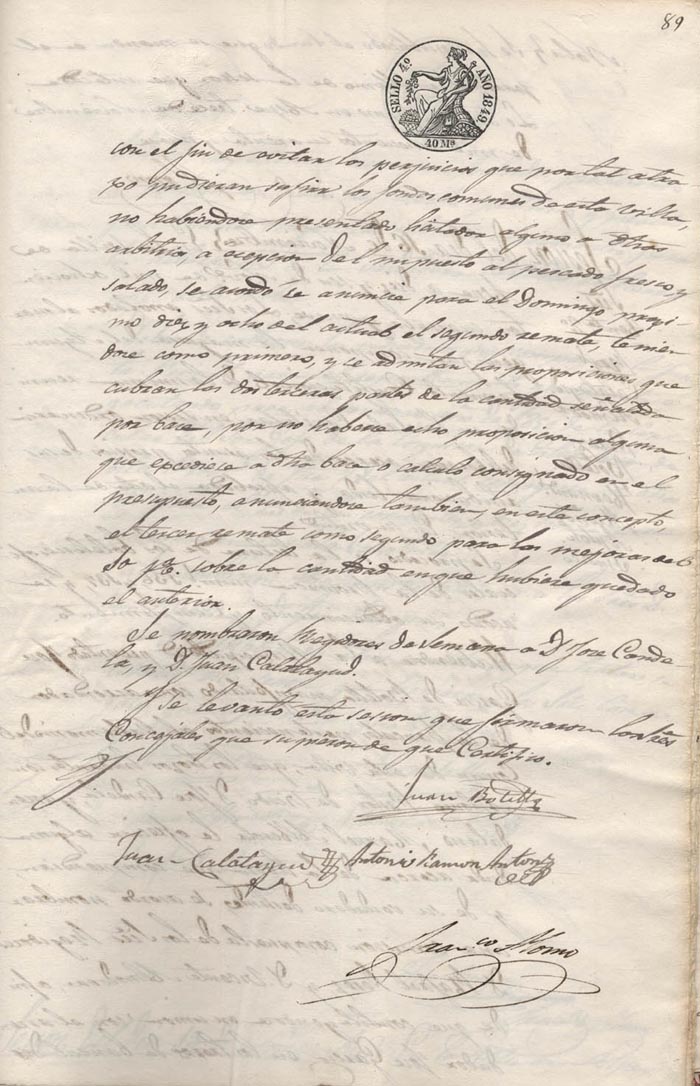 89
SELLO 4º AÑO 1849.
40 Ms
con el fin de evitar los perjuicios que por tal atra
so pudieran sufrir los fondos comunes de esta villa,
no habiendose presentado licitador alguno a otros
arbitrios, a ecepcion del impuesto al pescado fresco y
salado, se acordó se anuncie para el Domingo proxi
mo diez y ocho del actual el segundo remate, tenien
dose como primero, y se admitan las proposiciones que
cubran las dos terceras partes de la cantidad señalada
por bace, por no haberse echo proposicion alguna
que excediese a dha bace o calculo consignado en el
presupuesto, anunciandose tambien, en este concepto,
el tercer remate como segundo para las mejoras del
10 pº. sobre la cantidad en que hubiere quedado
el anterior.
Se nombraron Regidores de Semana a D. Jose Cande
la, y D. Juan Calatayud.
Y se levantó esta sesion que firmaron los Sres
Concejales que supieron de que Certifico.
Juan Botella
Juan Calatayud Antonio Ramon Antonio
Franco